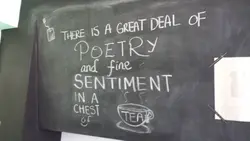 THERE IS A GREAT DEAL OF
POETRY
and fine
SENTIMENT
IN A
CHEST
of
TEA